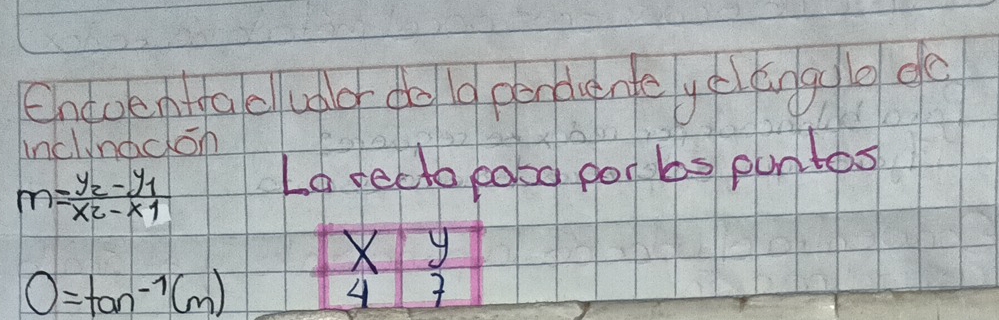 Encuentra el valor de la pendiente y el ángulo de
inclinación
m=y2-y1/x2-x1
La recta pasa por los puntos
X y
O=tan-1(m)
4 7